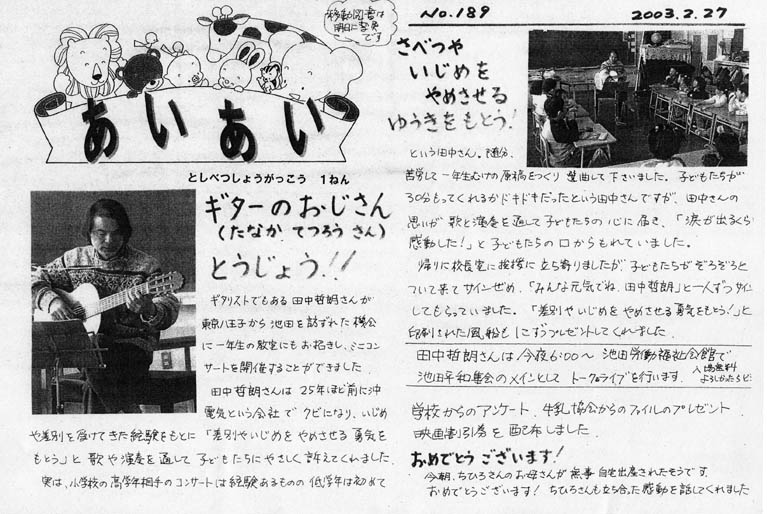 移動図書は
明日に変更
です
あいあい
としべつしょうがっこう 1ねん
ギターのおじさん
(たなか てつろう さん)
とうじょう!!
ギタリストでもある田中哲朗さんが
東京八王子から池田を訪ずれた機会
に一年生の教室にもお招きし、ミニコン
サートを開催することができました。
田中哲朗さんは 25年ほど前に沖
電気という会社でクビになり、いじめ
や差別を受けてきた経験をもとに「差別やいじめをやめさせる勇気を
もとう」と歌や演奏を通して子どもたちにやさしく訴えてくれました。
実は、小学校の高学年相手のコンサートは経験あるものの低学年は初めて
No.189 2003.2.27
さべつや
いじめを
やめさせる
ゆうきをもとう!
という田中さん。随分、
苦労して一年生むけの原稿をつくり選曲して下さいました。子どもたちが
30分もってくれるかドキドキだったという田中さんですが、田中さんの
思いが歌と演奏を通して子どもたちの心に届き、「涙が出るくらい
感動した!」と子どもたちの口からもれていました。
帰りに校長室に挨拶に立ち寄りましたが、子どもたちがぞろぞろと
ついて来てサインぜめ。「みんな元気でね、田中哲朗」と一人ずつサイン
してもらっていました。「差別やいじめをやめさせる勇気をもとう!」と
印刷された風船も1こずつプレゼントしてくれました。
田中哲朗さんは今夜6:00〜 池田労働福祉会館で
池田平和集会のメインとして トーク&ライブを行います。入場無料
よろしかったらど
学校からのアンケート、牛乳協会からのファイルのプレゼント、
映画割引券を配布しました。
おめでとうございます!
今朝、ちひろさんのお母さんが無事自宅出産されたそうです。
おめでとうございます! ちひろさんも立ち合った感動を話してくれました